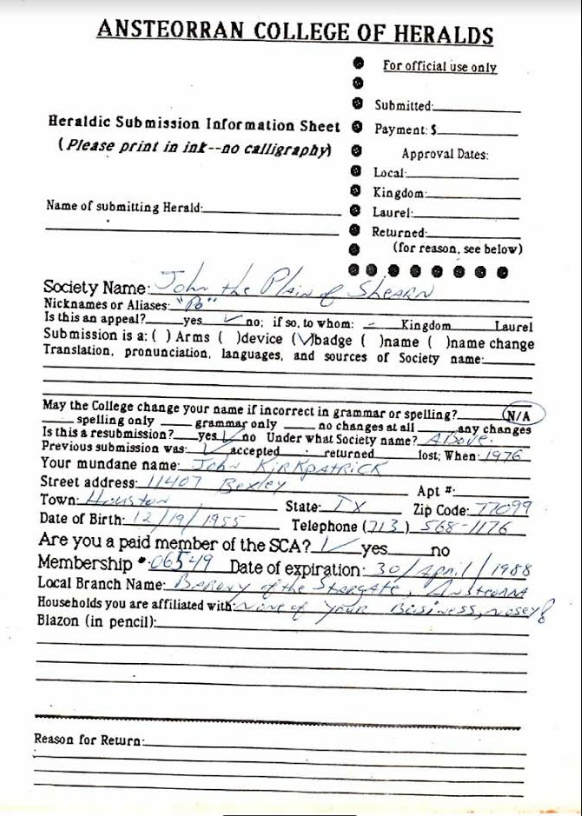 ANSTEORRAN COLLEGE OF HERALDS
For official use only
Submitted:
Heraldic Submission Information Sheet
Payment: $
(Please print in ink--no calligraphy)
Approval Dates:
Local:
Kingdom:
Name of submitting Herald:
Laurel:
Returned:
(for reason, see below)
Society Name: John the Plain of Shearn
Nicknames or Aliases: "Po"
Is this an appeal? yes ✓ no; if so, to whom: - Kingdom Laurel
Submission is a: ( ) Arms ( )device (✓)badge ( )name ( )name change
Translation, pronunciation, languages, and sources of Society name:
May the College change your name if incorrect in grammar or spelling? N/A
spelling only grammar only no changes at all any changes
Is this a resubmission? yes ✓ no Under what Society name? Above.
Previous submission was: ✓ accepted returned lost; When: 1976
Your mundane name: John Kirkpatrick
Street address: 11407 Bexley Apt #:
Town: Houston State: TX Zip Code: 77099
Date of Birth: 12/19/1955 Telephone (713) 568-1176
Are you a paid member of the SCA? ✓ yes no
Membership # 06549 Date of expiration: 30/April/1988
Local Branch Name: Barony of the Stargate, Ansteorra
Households you are affiliated with: None of your Business, nosey!
Blazon (in pencil):
Reason for Return: